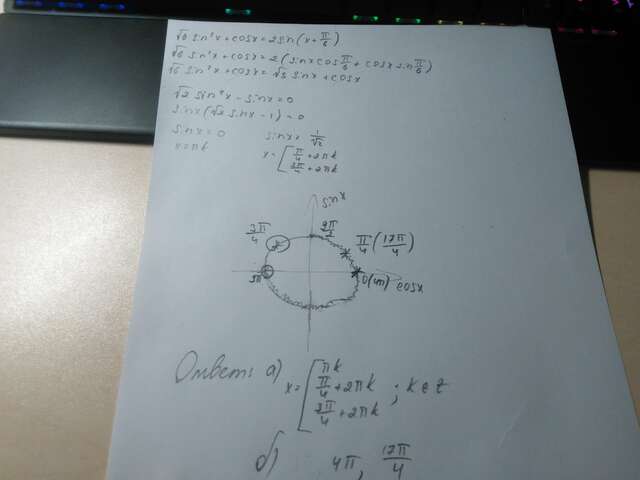 √6 sin²x + cosx = 2sin(x + π/6)
√6 sin²x + cosx = 2(sinx cos π/6 + cosx sin π/6)
√6 sin²x + cosx = √3 sinx + cosx
√2 sin²x - sinx = 0
sinx(√2 sinx - 1) = 0
sinx = 0 sinx = 1/√2
x = πk x = [ π/4 + 2πk
3π/4 + 2πk
sinx
3π/4 π/4 (17π/4)
0(4π) cosx
Ответ: а) x = [ πk
π/4 + 2πk ; k ∈ Z
3π/4 + 2πk
б) 4π, 17π/4